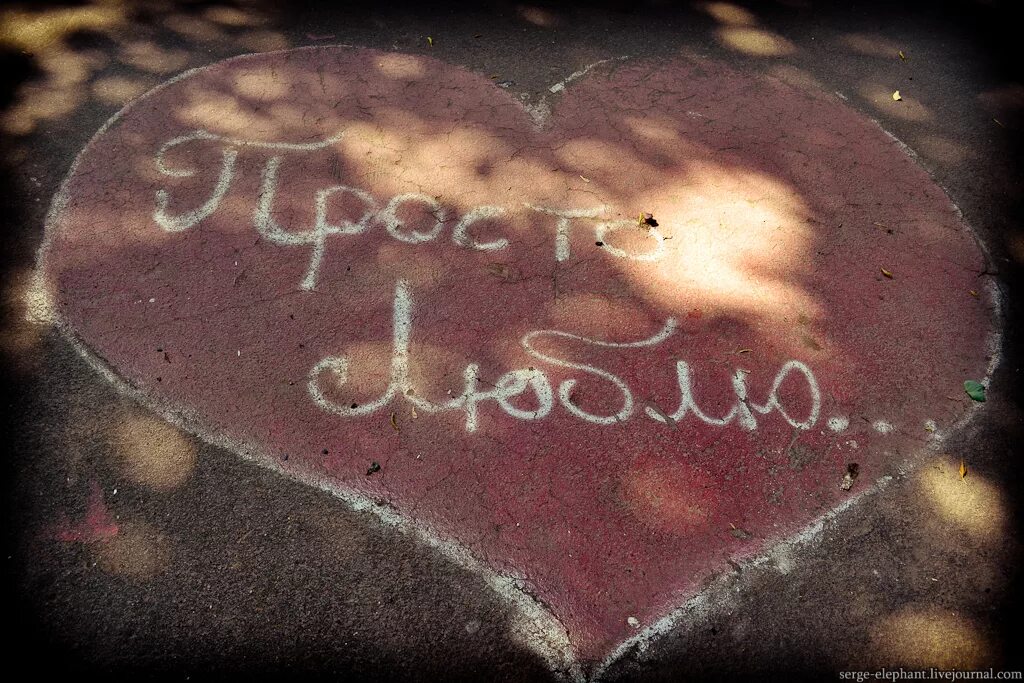 Просто
Люблю...
serge-elephant.livejournal.com